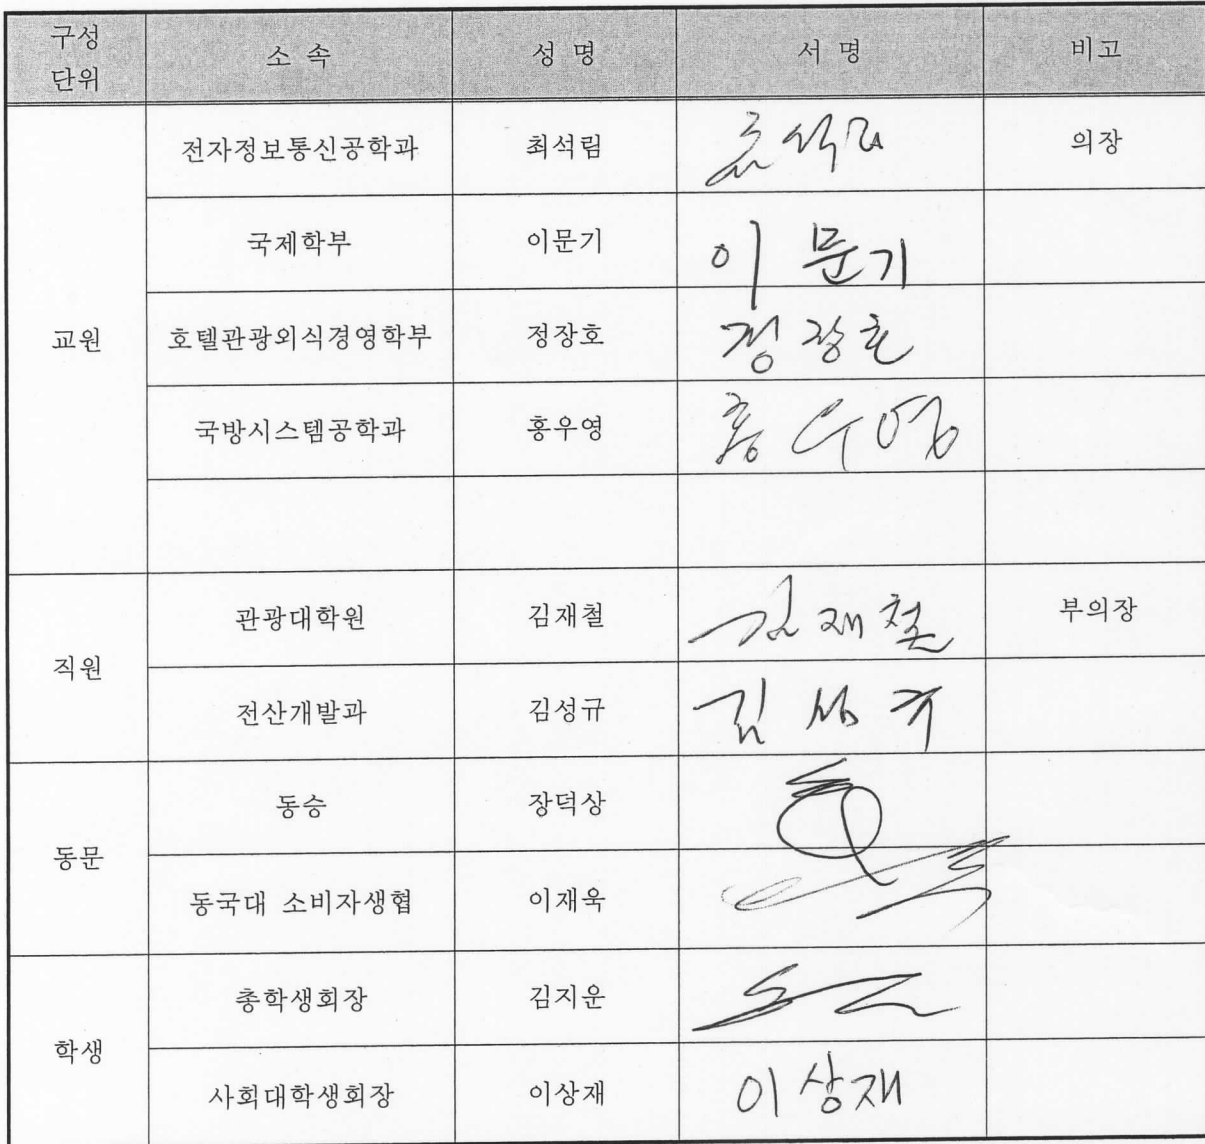 구성 단위 소속 성명 서명 비고
교원 전자정보통신공학과 최석림 의장
국제학부 이문기 이문기
호텔관광외식경영학부 정장호 정장호
국방시스템공학과 홍우영 홍우영
직원 관광대학원 김재철 김재철 부의장
전산개발과 김성규 김성규
동문 동승 장덕상
동국대 소비자생협 이재욱
학생 총학생회장 김지운
사회대학생회장 이상재 이상재